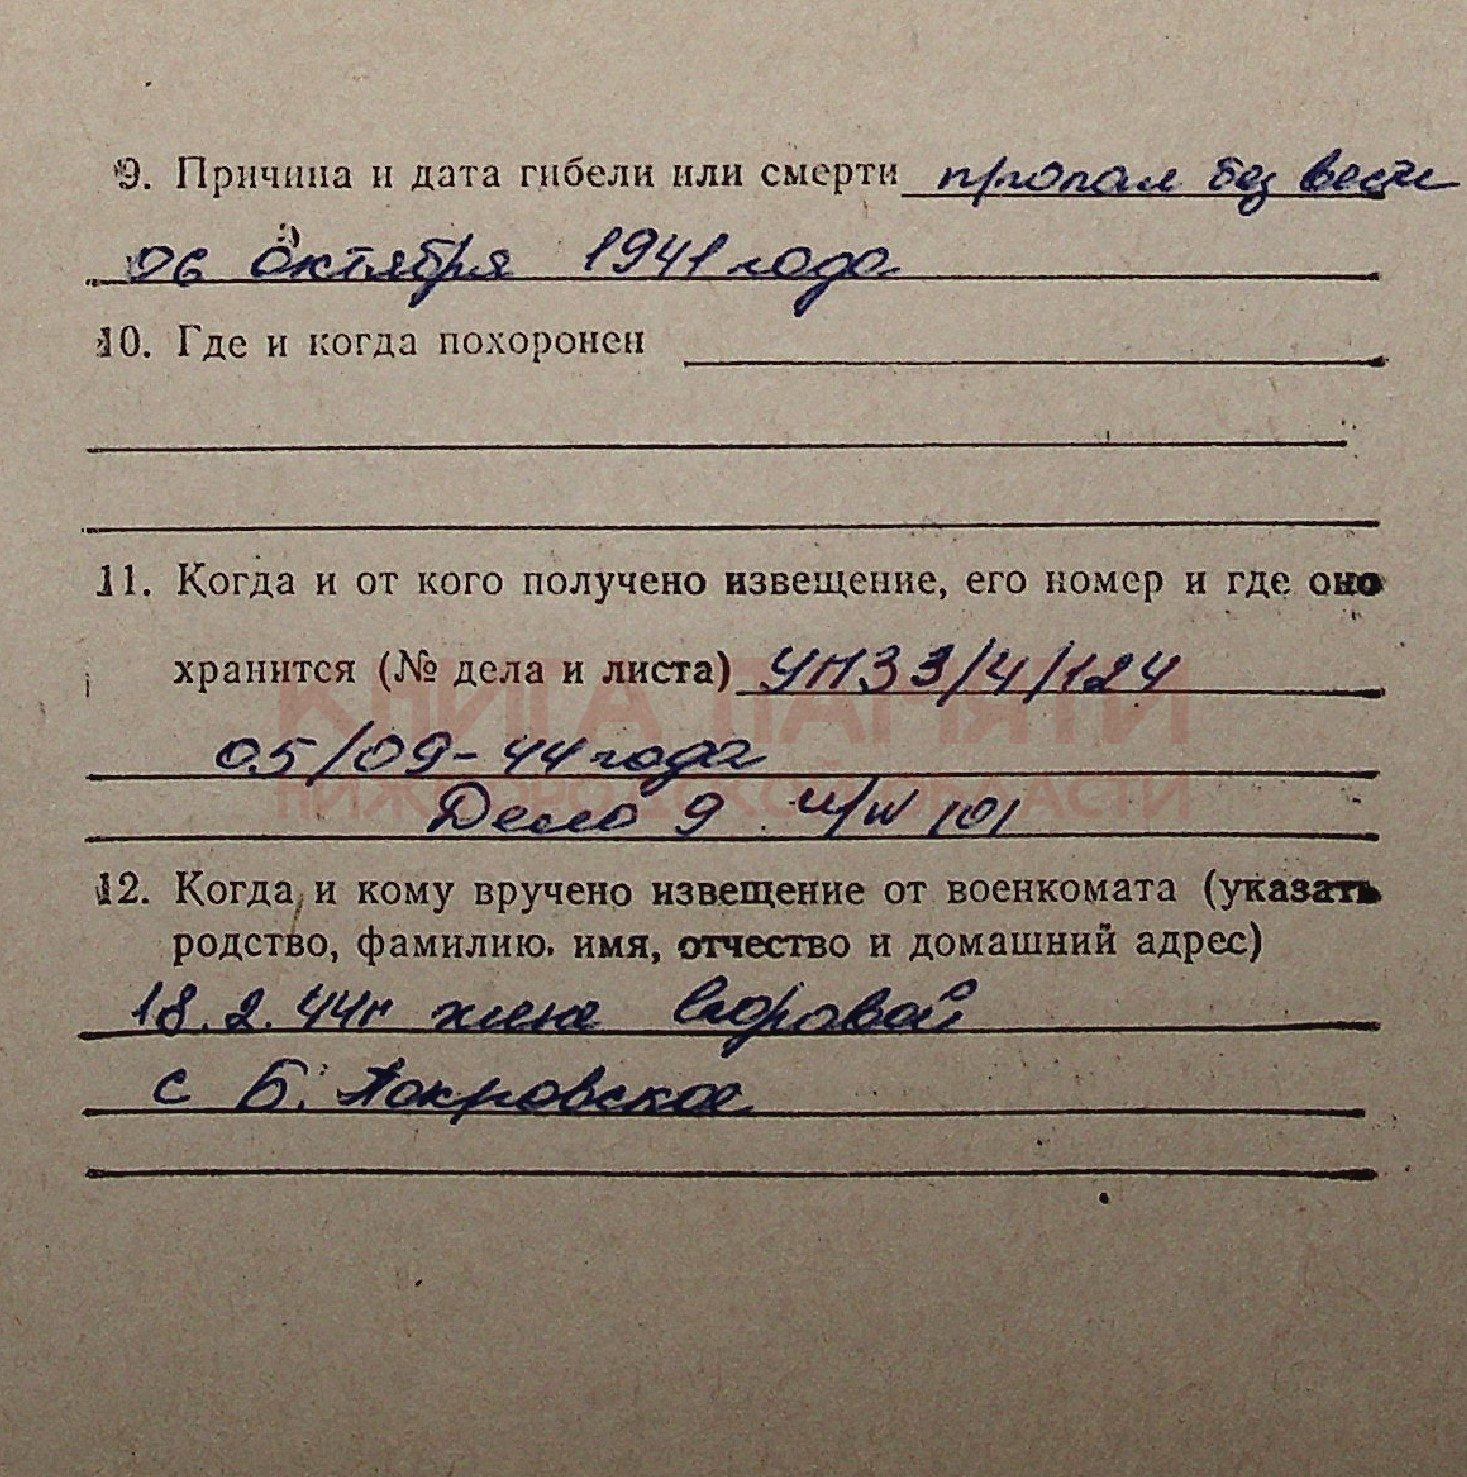 9. Причина и дата гибели или смерти пропал без вести
06 октября 1941 года
10. Где и когда похоронен
11. Когда и от кого получено извещение, его номер и где оно
хранится (№ дела и листа) УПЗ 3/4/124
КНИГА ПАМЯТИ
05/09-44 года
НИЖЕГОРОДСКОЙ ОБЛАСТИ
Дело 9 101
12. Когда и кому вручено извещение от военкомата (указать
родство, фамилию, имя, отчество и домашний адрес)
18.2.44г жене
с Б. Покровское